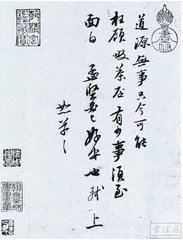 道源無事只今可能
枉顧啜茶否有少事須至
面白孟堅必已好安也軾上
恕草々